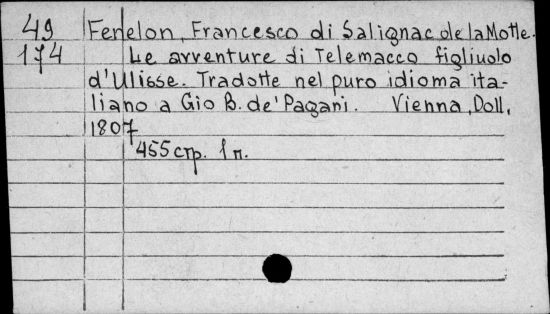 49 Fenelon, Francesco di Salignac de la Motte.
174 Le avventure di Telemacco figliuolo
d'Ulisse. Tradotte nel puro idioma ita-
liano a Gio B. de' Pagani. Vienna, Doll,
1807
455 стр. 1 п.